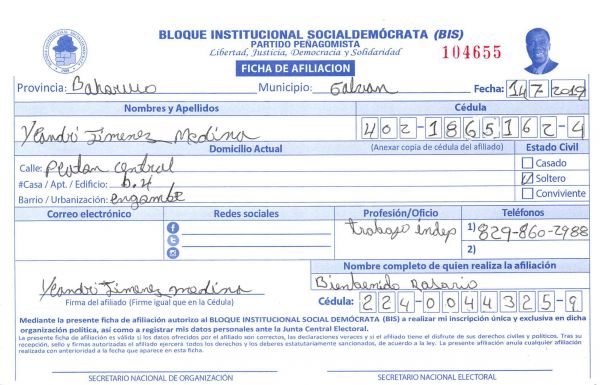 BLOQUE INSTITUCIONAL SOCIALDEMÓCRATA (BIS)
PARTIDO PEÑAGOMISTA
Libertad, Justicia, Democracia y Solidaridad
104655
FICHA DE AFILIACION
Provincia: Bahoruco Municipio: Galvan Fecha: 14 7 2019
Nombres y Apellidos Cédula
Yeandri Jimenez Medina 402-1865162-4
Domicilio Actual (Anexar copia de cédula del afiliado) Estado Civil
Calle: Platon Central Casado
#Casa / Apt. / Edificio: D.4 Soltero
Barrio / Urbanización: engombe Conviviente
Correo electrónico Redes sociales Profesión/Oficio Teléfonos
trabajo indep 1) 829-860-2988
2)
Nombre completo de quien realiza la afiliación
Yeandri Jimenez medina Bienbenido Rosario
Firma del afiliado (Firme igual que en la Cédula) Cédula: 224-0044325-9
Mediante la presente ficha de afiliación autorizo al BLOQUE INSTITUCIONAL SOCIAL DEMÓCRATA (BIS) a realizar mi inscripción única y exclusiva en dicha
organización política, así como a registrar mis datos personales ante la Junta Central Electoral.
La presente ficha de afiliación es válida si los datos ofrecidos por el afiliado son correctos, las declaraciones veraces y si el afiliado tiene el disfrute de sus derechos civiles y políticos. Tras su
recepción, sello y firmas autorizadas el afiliado ejercerá todos los derechos y los deberes estatutariamente sancionados, de acuerdo a la ley. La presente afiliación anula cualquier afiliación
realizada con anterioridad a la fecha que aparece en esta ficha.
SECRETARIO NACIONAL DE ORGANIZACIÓN SECRETARIO NACIONAL ELECTORAL